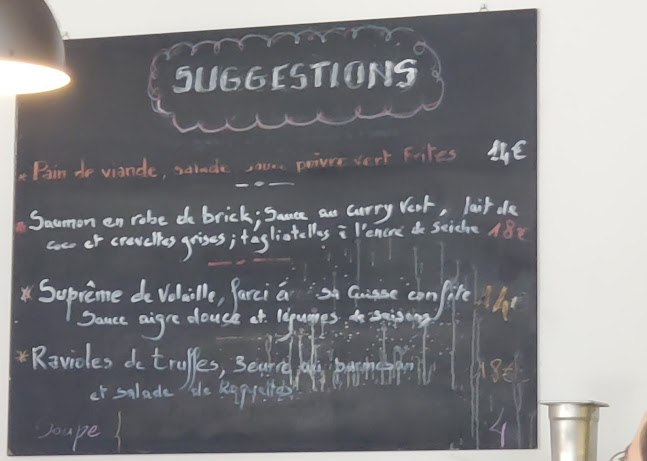 SUGGESTIONS
* Pain de viande, salade sauce poivre vert Frites 14€
* Saumon en robe de brick; Sauce au curry Vert, lait de
coco et crevettes grises; tagliatelles à l'encre de seiche 18€
* Suprême de Volaille, farci à sa Cuisse confite 14€
Sauce aigre douce et légumes de saisons
* Ravioles de truffes, Beurre au parmesan 18€
et salade de Roquettes
Soupe 4